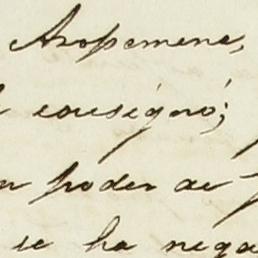 Arosemena,
consignó;
poder de
se ha nega